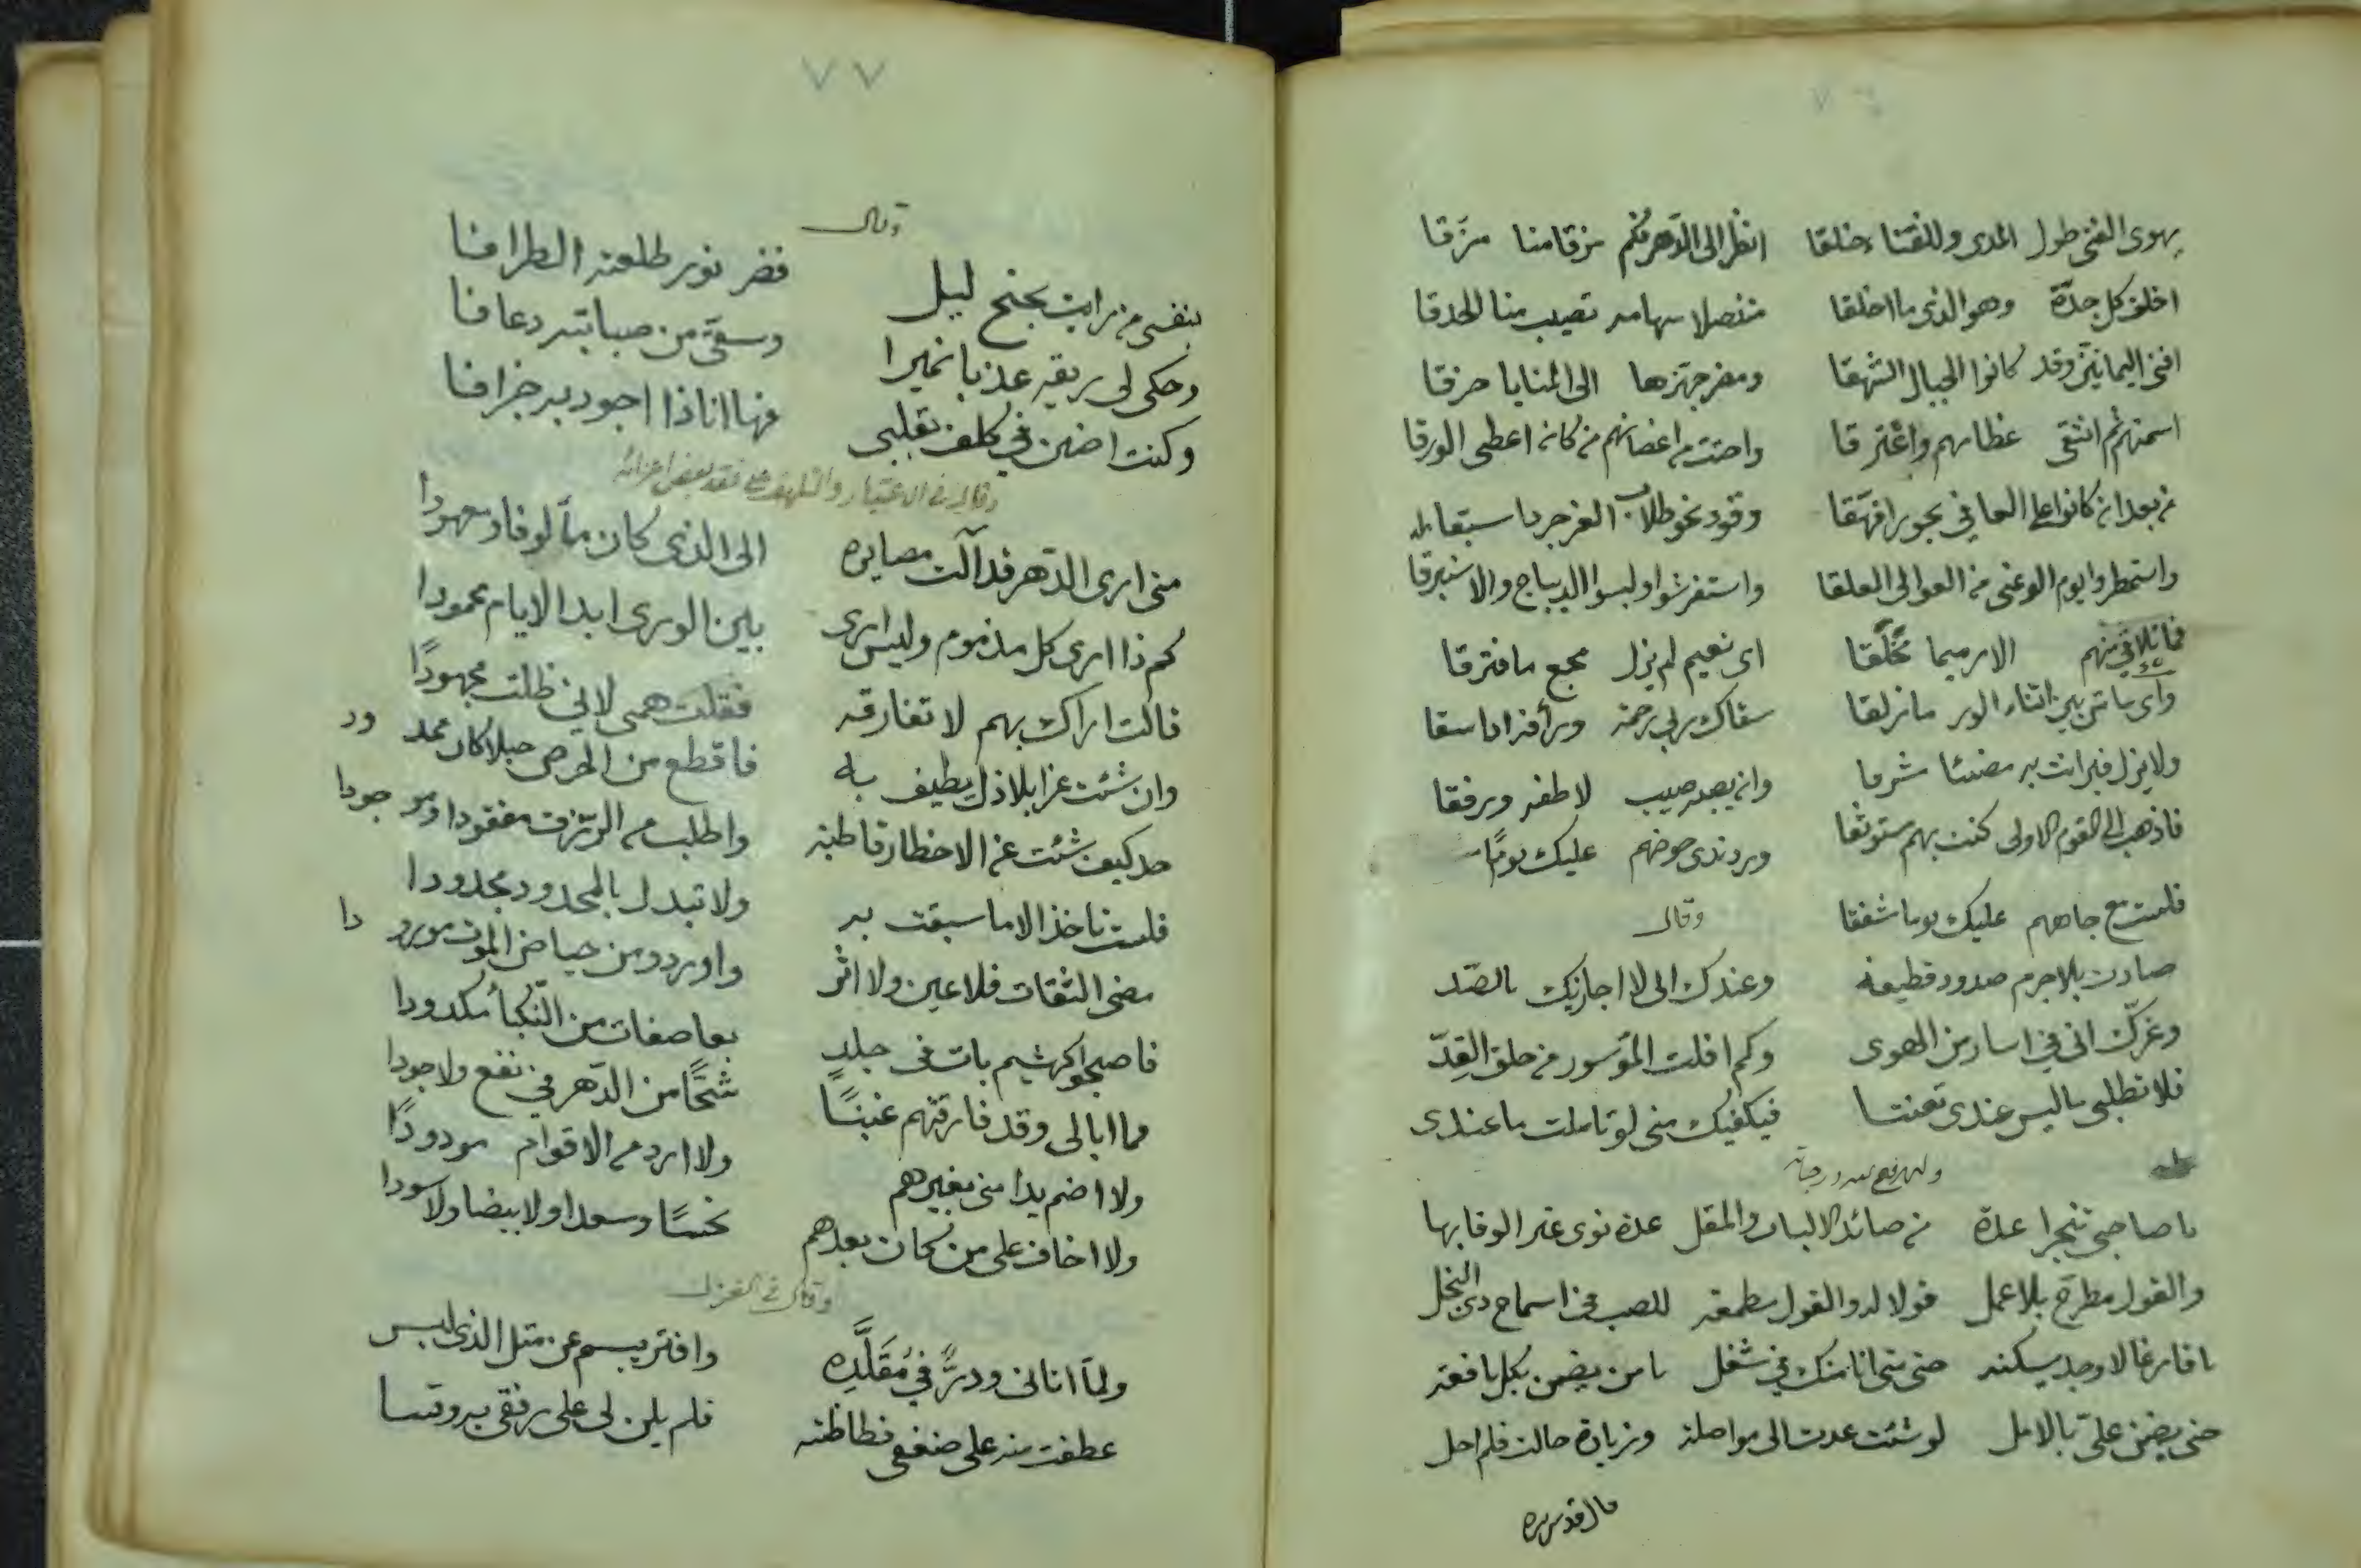 يهوى الفتى طول المدى وللفناء خلقا انظر إلى الدهر فكم مزقا منا مزقا
اخلق كل جدة وهو الذي ما اخلقا منصلا سهامه تصيب منا الحدقا
افنى اليمانين وقد كانوا الجبال الشهقا ومضر جهزها الى المنايا حزقا
اسمنهم ثم انتقى عظامهم واعترقا واحتت من اغصانهم من كان اعطى الورقا
من بعد ان كانوا على العافي بحورا فهقا وقود نحو طلاب العز جردا سبقا
واستمطروا يوم الوغى من العوالى العلقا واستفرشوا ولبسوا الديباج والاستبرقا
فما تلاقي منهم الا رميما مخلقا اى نعيم لم يزل مجمع ما فترقا
واى باتن بين اثناء الور ما نزلقا سقاك ربى رحمة ورأفة اذا سقا
ولا يزل قبر انت به مضيئا شرقا وان يصبه صيب لاطفه ورفقا
فاذهب الى القوم الاولى كنت بهم ستوثقا ورد ندى حوضهم عليك يوما
فلست مع جاههم عليك يوما شفقا
وقال
صددت بلا جرم صدود قطيعة وعندك انى لا اجازيك بالصد
وغرك انى في اسار من الهوى وكم افلت المؤسور من حلق القد
فلا تطلبى ما ليس عندى تعنتا فيكفيك منى لو تاملت ما عندى
وله رفع الله درجاته
يا صاحبى تنجزا عدة من صائد الالباب والمقل عدة نوى غير الوفا بها
والقول مطرح بلا عمل قولا له والقول مطمعة للصب في اسماح ذى البخل
يا فارغا لا وجد يسكنه حتى متى انا منك في شغل يا من يضن بكل نافعة
حتى يضن على بالامل لو شئت عدت الى مواصلة وزيادة حالت فلم احل
قال قدس سره
٧٧
وقال
بنفسى من رايت بجنح ليل فضر نور طلعته الطرافا
وحكى لى بريقه عذبا نميرا وسقى من صبابته دعافا
وكنت اضن في كلف بقلبى فها انا ذا اجود به جزافا
وقال في الاعتبار والتلهف على فقد بعض اعزائه
متى ارى الدهر قد آلت مصايره الى الذى كان مآلوفا ومعهودا
كم ذا ارى كل مذموم وليس ارى بين الورى ابد الايام محمودا
قالت اراك بهم لا تفارقه فقلت همى لانى ظلت مجهودا
وان شئت عزا بلا ذل يطيف به فاقطع من الحرص حبلا كان ممدود
حد كيف شئت عن الاخطار قاطبة واطلب من الرزق مفقودا وموجودا
فلست تاخذ الا ما سبقت به ولا تبدل بالمجدود مجدودا
مضى الثقات فلا عين ولا اثر واوردو من حياض الموت مورودا
فاصبحوا كهشيم بات في جلد بعاصفات من النكبأ مكدودا
مما ابالى وقد فارقتهم غبنًا شحًا من الدهر في نفع ولا جودا
ولا اضم يدا منى بغيرهم ولا ارد من الاقوام مودودًا
ولا اخاف على من كان بعدهم نحسًا وسعدا ولا بيضا ولا سودا
وقال في الغزل
ولما اتانى ودرٌّ في مُقَلَّدِه وافتر يبسم عن مثل الذى لبس
عطفت منه على ضغفى فظاظته فلم يلن لى على رفقى به وقسا